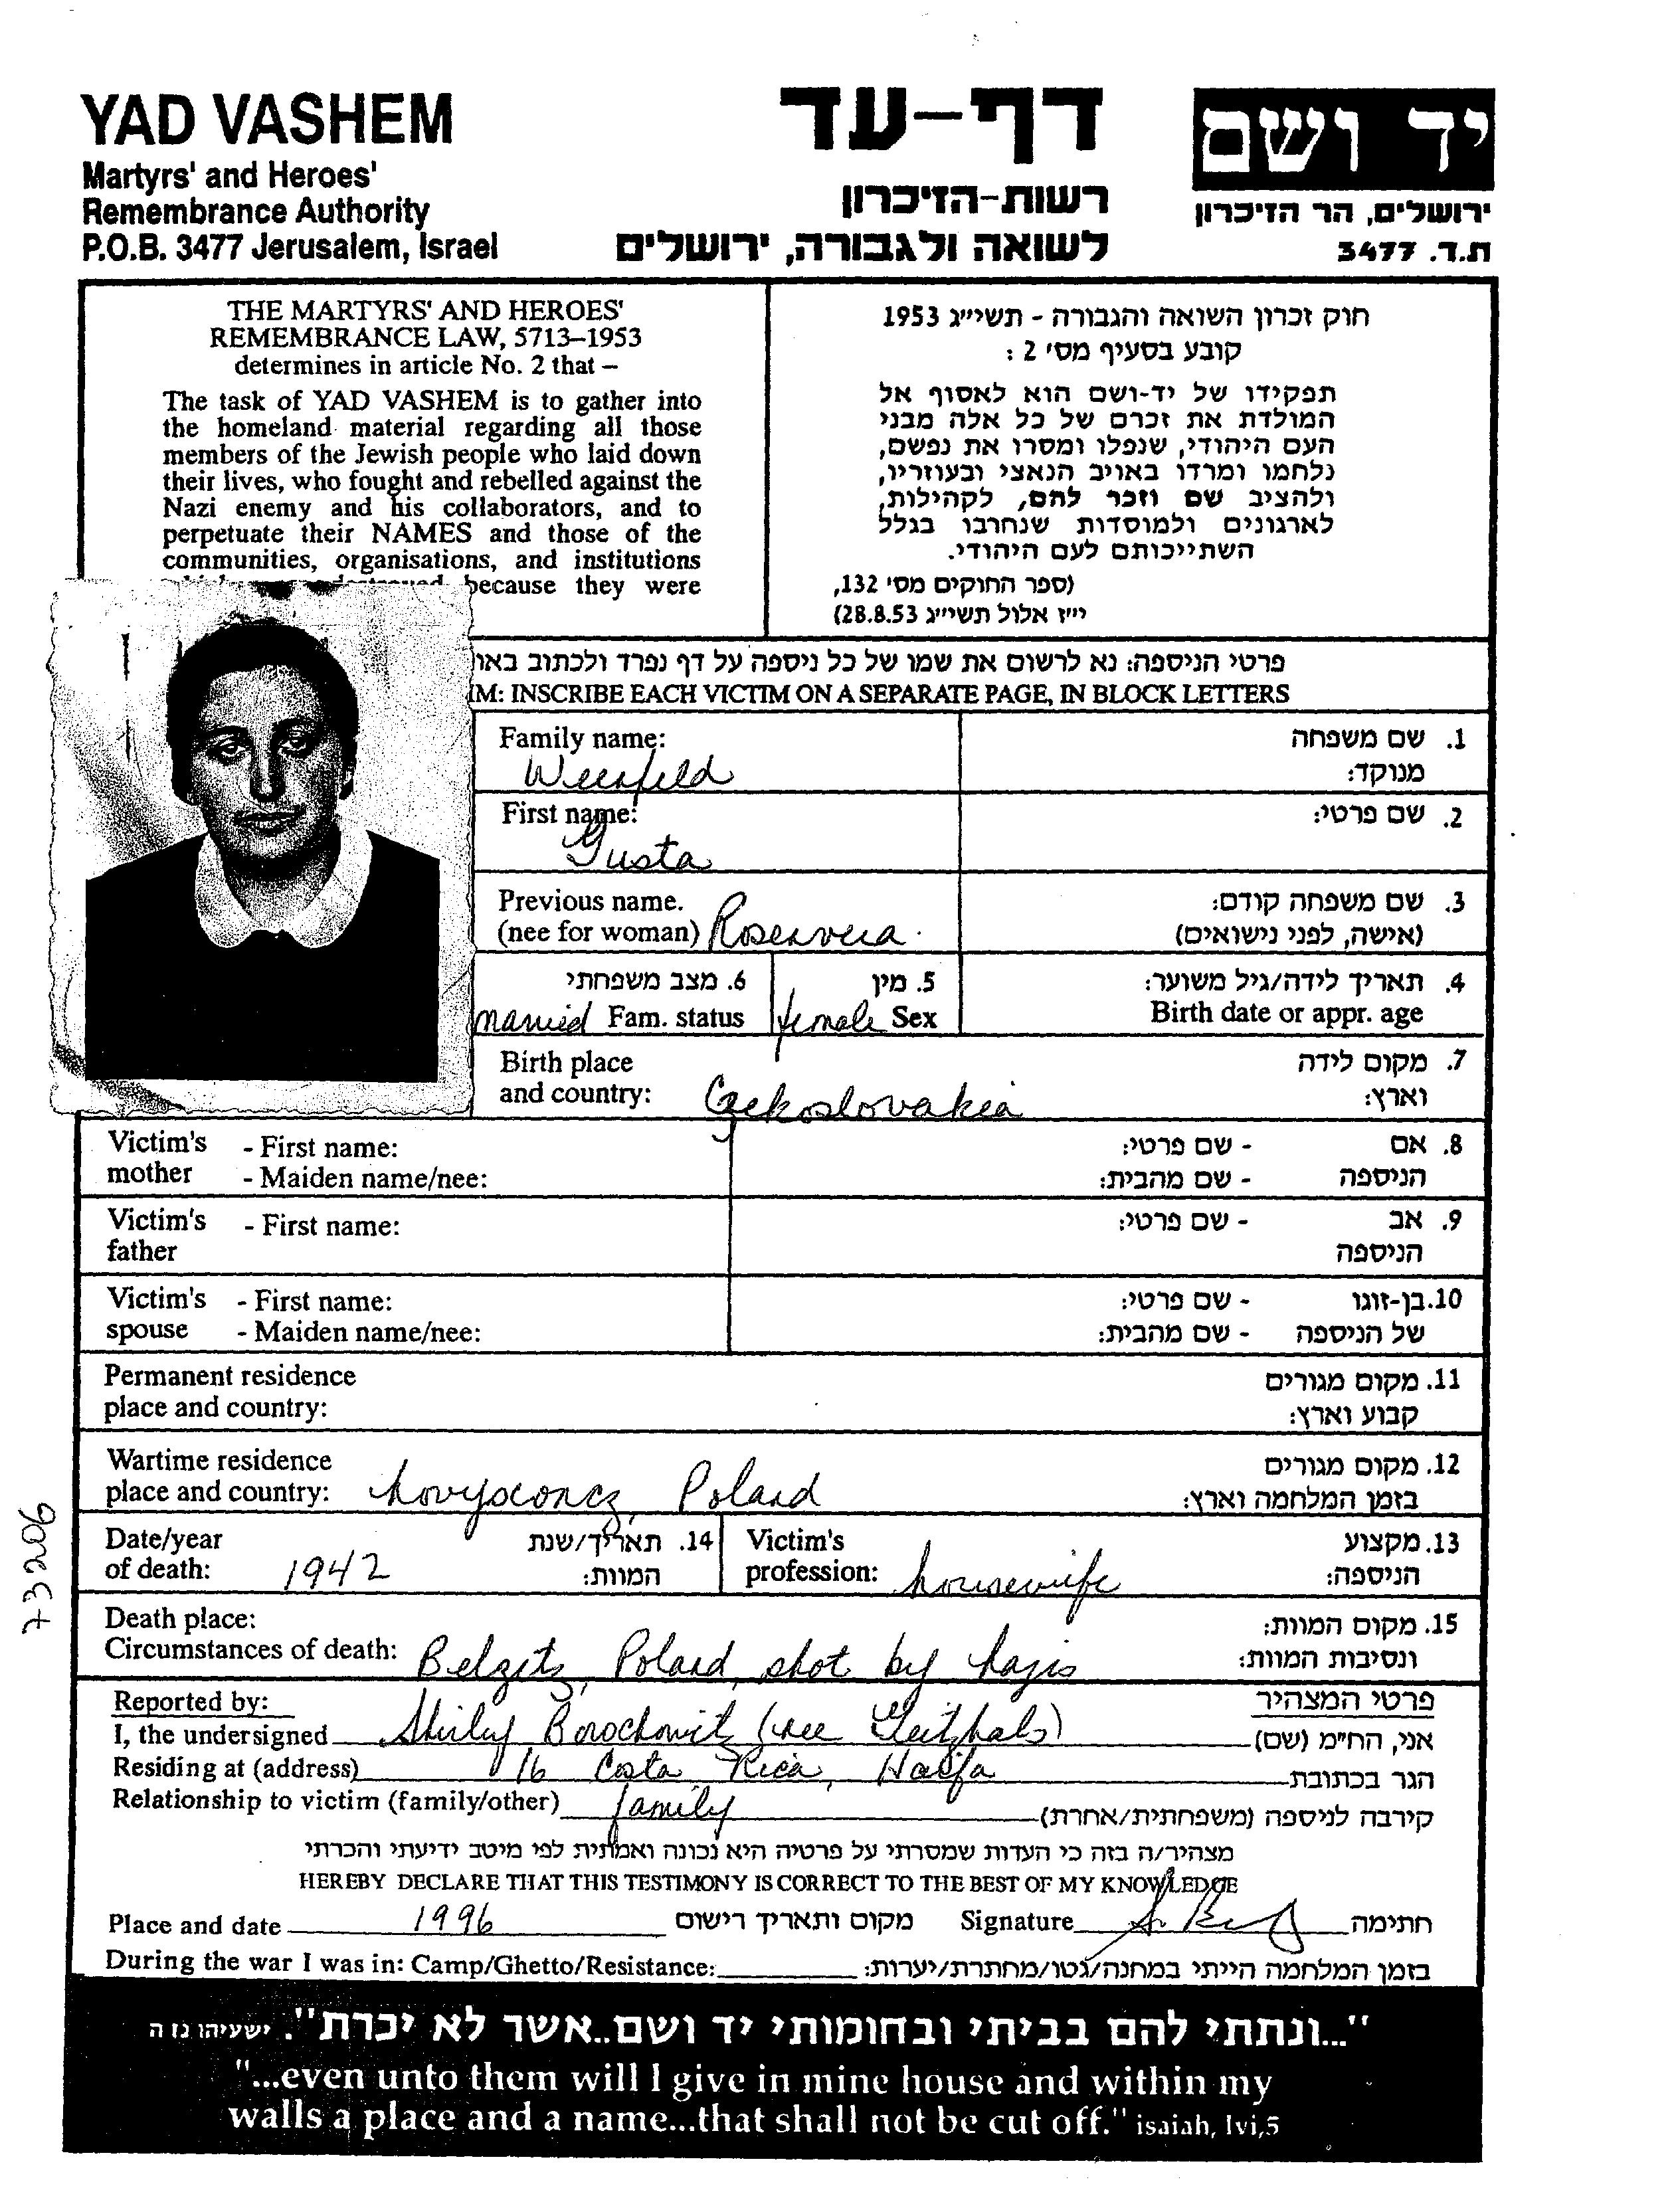 YAD VASHEM
Martyrs' and Heroes'
Remembrance Authority
P.O.B. 3477 Jerusalem, Israel
דף-עד
רשות-הזיכרון
לשואה ולגבורה, ירושלים
יד ושם
ירושלים, הר הזיכרון
ת.ד. 3477
THE MARTYRS' AND HEROES'
REMEMBRANCE LAW, 5713–1953
determines in article No. 2 that –
The task of YAD VASHEM is to gather into
the homeland material regarding all those
members of the Jewish people who laid down
their lives, who fought and rebelled against the
Nazi enemy and his collaborators, and to
perpetuate their NAMES and those of the
communities, organisations, and institutions
because they were
חוק זכרון השואה והגבורה - תשי״ג 1953
קובע בסעיף מס׳ 2 :
תפקידו של יד-ושם הוא לאסוף אל
המולדת את זכרם של כל אלה מבני
העם היהודי, שנפלו ומסרו את נפשם,
נלחמו ומרדו באויב הנאצי ובעוזריו,
ולהציב שם וזכר להם, לקהילות,
לארגונים ולמוסדות שנחרבו בגלל
השתייכותם לעם היהודי.
(ספר החוקים מס׳ 132,
י״ז אלול תשי״ג 28.8.53)
פרטי הניספה: נא לרשום את שמו של כל ניספה על דף נפרד ולכתוב באו
M: INSCRIBE EACH VICTIM ON A SEPARATE PAGE, IN BLOCK LETTERS
Family name:
1. שם משפחה
מנוקד:
First name:
Gusta
2. שם פרטי:
Previous name.
(nee for woman)
3. שם משפחה קודם:
(אישה, לפני נישואים)
6. מצב משפחתי
married Fam. status
5. מין
female Sex
4. תאריך לידה/גיל משוער:
Birth date or appr. age
Birth place
and country: Czekoslovakia
7. מקום לידה
וארץ:
Victim's - First name:
mother - Maiden name/nee:
8. אם - שם פרטי:
הניספה - שם מהבית:
Victim's - First name:
father
9. אב - שם פרטי:
הניספה
Victim's - First name:
spouse - Maiden name/nee:
10. בן-זוגו - שם פרטי:
של הניספה - שם מהבית:
Permanent residence
place and country:
11. מקום מגורים
קבוע וארץ:
Wartime residence
place and country: Poland
12. מקום מגורים
בזמן המלחמה וארץ:
Date/year
of death: 1942
14. תאריך/שנת
המוות:
Victim's
profession: housewife
13. מקצוע
הניספה:
Death place:
Circumstances of death: Belzitz, Poland, shot by nazis
15. מקום המוות:
ונסיבות המוות:
Reported by:
פרטי המצהיר
I, the undersigned Shirley Borochovitz (nee Leithals) אני, הח״מ (שם)
Residing at (address) 16 Costa Rica, Haifa הגר בכתובת
Relationship to victim (family/other) family קירבה לניספה (משפחתית/אחרת)
מצהיר/ה בזה כי העדות שמסרתי על פרטיה היא נכונה ואמתית לפי מיטב ידיעתי והכרתי
HEREBY DECLARE THAT THIS TESTIMONY IS CORRECT TO THE BEST OF MY KNOWLEDGE
Place and date 1996 מקום ותאריך רישום Signature חתימה
During the war I was in: Camp/Ghetto/Resistance: בזמן המלחמה הייתי במחנה/גטו/מחתרת/יערות:
73206
"...ונתתי להם בביתי ובחומותי יד ושם..אשר לא יכרת". ישעיהו נו ה
"...even unto them will I give in mine house and within my
walls a place and a name...that shall not be cut off." isaiah, lvi,5